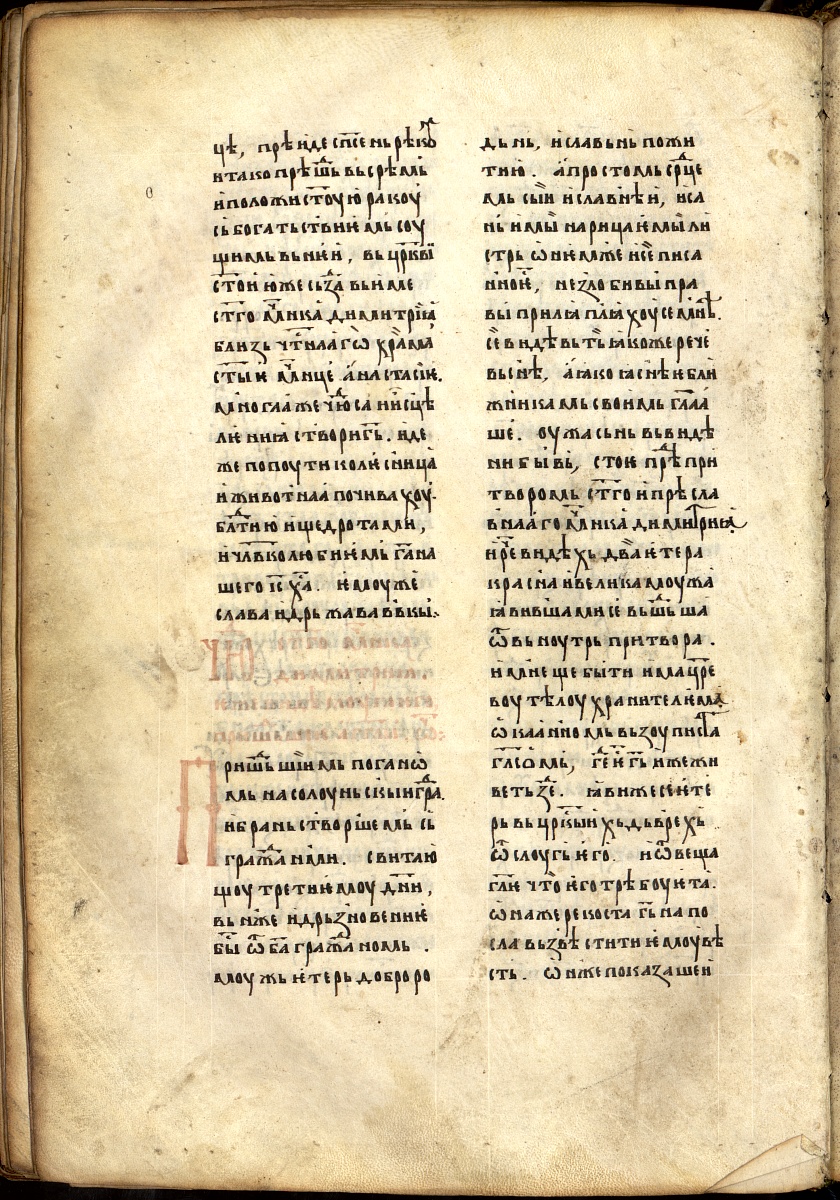 цѣ, прѣиде спсень рѣкѹ
и тако прѣшьⷣ вь срѣмь
и положи стоую ракоу
сь богатьствиѥмь соу
щимь вь нѥи, вь црⷦ҇ви
стои юже сьзⷣа вь име
стго мⷱ҇нка димитриꙗ
близь чтⷭ҇нлаго храма
стыѥ мⷱ҇нце анастасиѥ.
многа же чюⷣса и исцѣ
лѥниꙗ створи гь. иде
же по поути колѥсница
и животнаа почива хоу
блгⷣтию и щедротами,
и члв҇колюбиѥмь га на
шего іс ха. ѥмоу же
слава и дрьжава вь вⷦ҇ы
ришьⷣшиимь поганѡ
мь на солоуньскыи граⷣ.
и брань створшемь сь
гражⷣаними. свитаю
щоу третиѥмоу дни,
вь нѥже и дрьзновениѥ
бы ѿ ба гражⷣаномь .
моужь ѥтерь доброро
дьнь, и славьнь по жи
тию . а простомь срⷣце
мь сыи и славнѣи, и са
нь имы нарицаѥмы ли
стрь ѡ нѥмже и се писа
нноѥ, незлобивы пра
вы прилѣплꙗхоу се мнѣ.
се видѣ вь тьⷤ ꙗкоже рече
вь снѣ, а ꙗко ꙗснѣѥ бли
жникамь своимь глаа
ше. оужасьнь вь видѣ
ни бывь, стоѥ прѣⷣ при
творомь стго и прѣсла
внаго мⷱ҇нка димитриꙗ
и рⷱ҇е видѣхь два ѥтера
красна и велика моужа
ꙗвивша ми се вьшьⷣша
ѿ вьноутрь притвора .
и мнѥ ще быти има цре
воу тѣлоу хранителꙗ
ѡкаанномь вьзоуписта
глсѡмь, где ѥ гь иже жи
веть зⷣе. ꙗви же се ѥте
рь вь цркы ихь дьврехь
ѿ слоугь ѥго. и ѿвеща
глѥ что ѥго трѣбоуѥта.
ѡна же рекоста гь на по
сла вьзвѣстити ѥмоу вѣ
сть. ѡн же показаше и